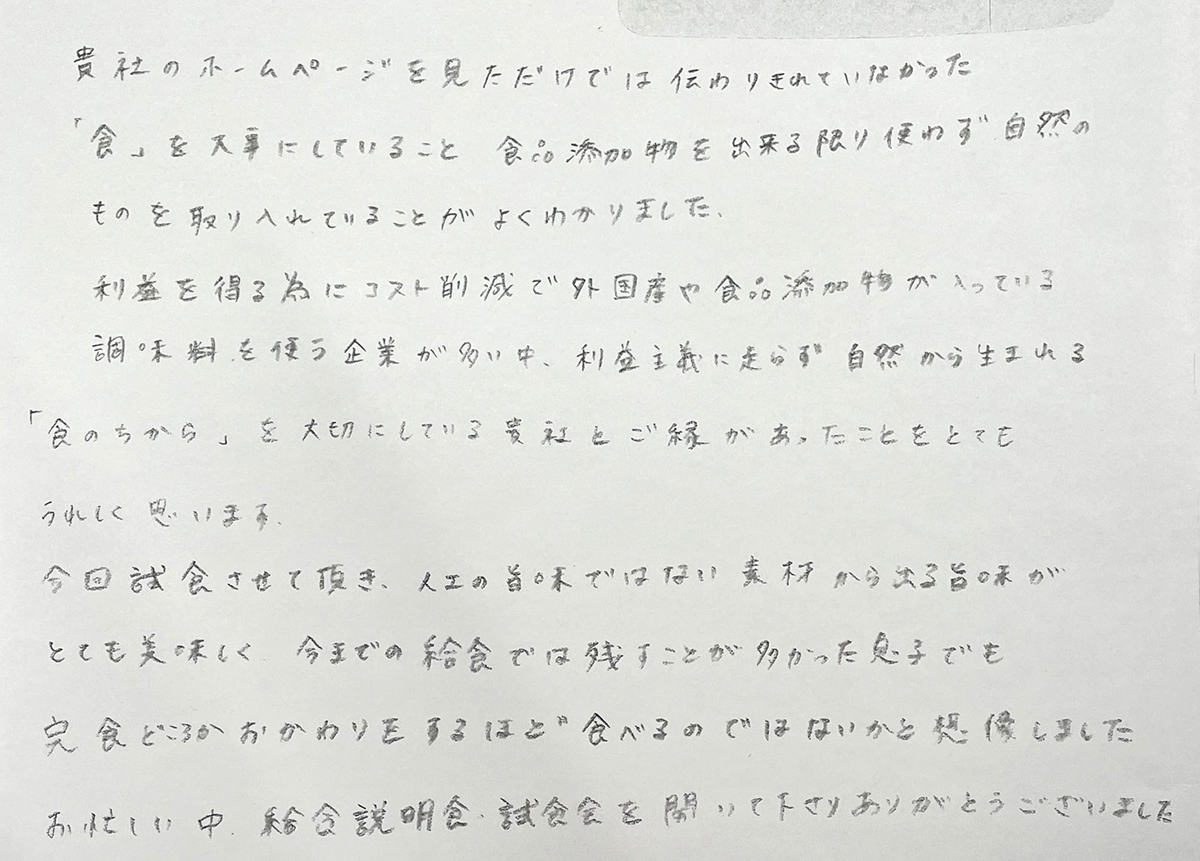 貴社のホームページを見ただけでは伝わりきれていなかった
「食」を大事にしていること 食品添加物を出来る限り使わず自然の
ものを取り入れていることがよくわかりました。
利益を得る為にコスト削減で外国産や食品添加物が入っている
調味料を使う企業が多い中、利益主義に走らず自然から生まれる
「食のちから」を大切にしている貴社とご縁があったことをとても
うれしく思います。
今回試食させて頂き、人工の旨味ではない素材から出る旨味が
とても美味しく 今までの給食では残すことが多かった息子でも
完食どころかおかわりをするほど食べるのではないかと想像しました
お忙しい中、給食説明食・試食会を開いて下さりありがとうございました